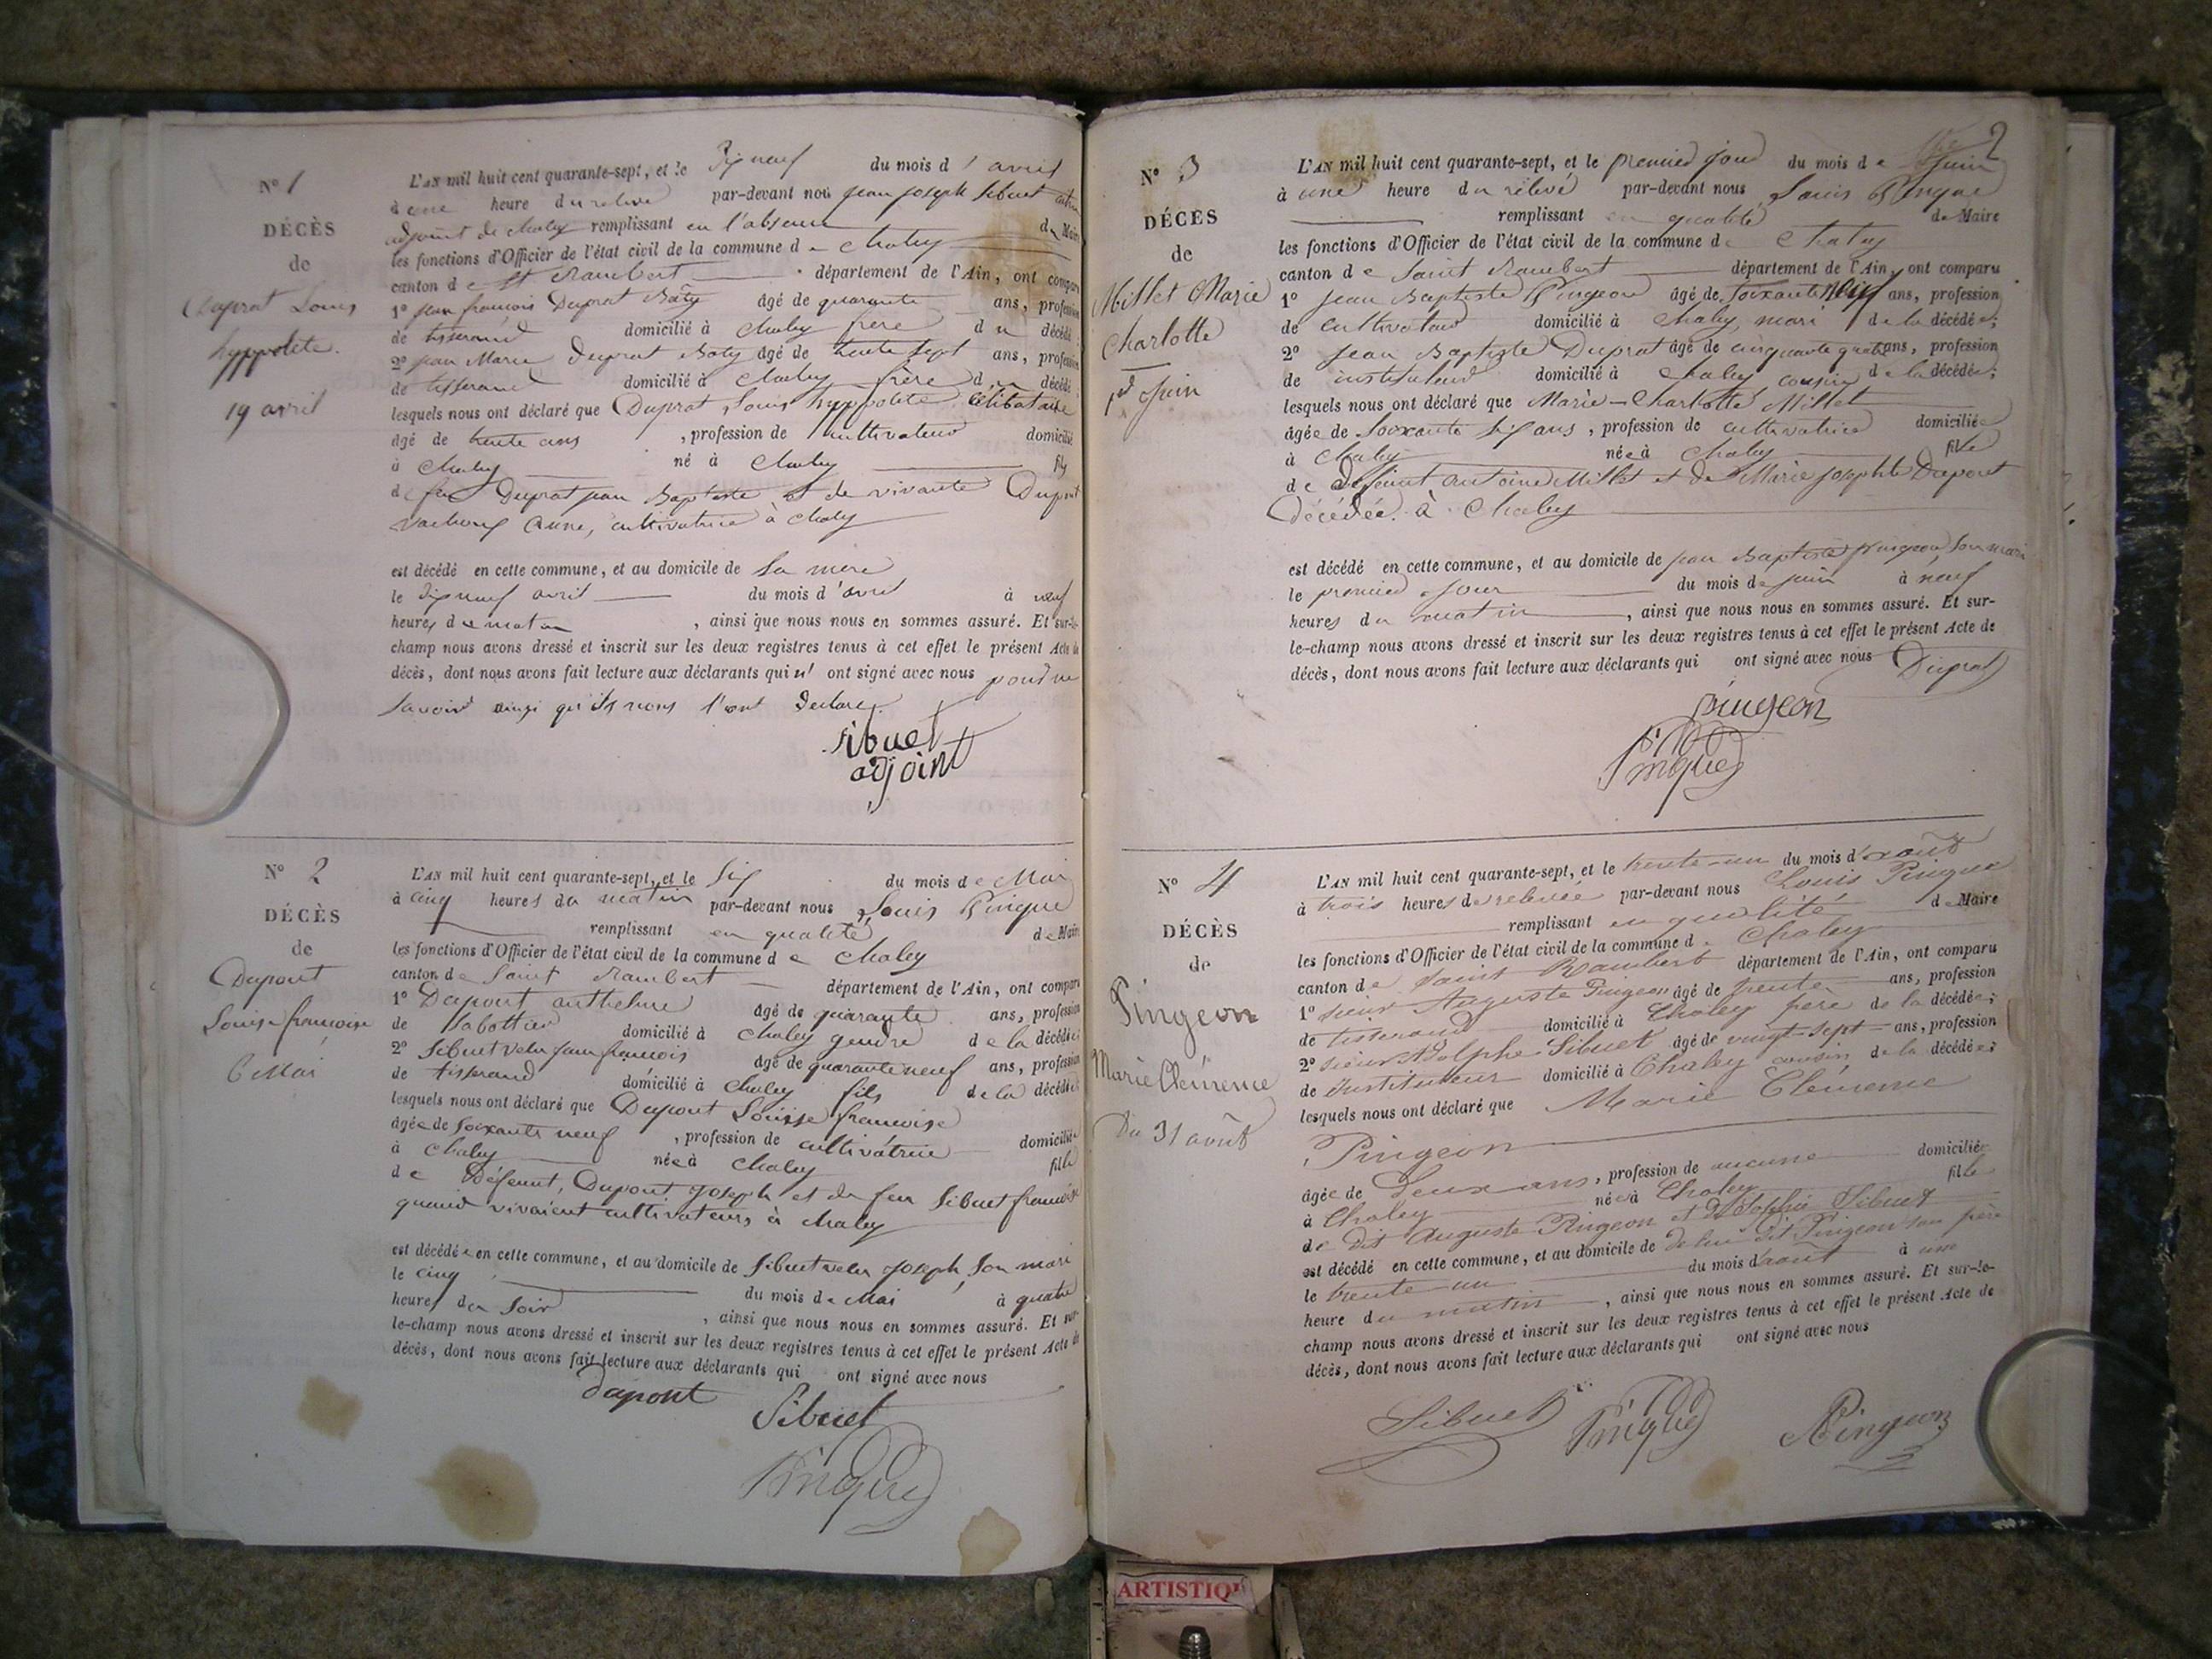 N° 1
DÉCÈS
de
Duprat Louis
hyppolite.
19 avril
L'AN mil huit cent quarante-sept, et le Dix neuf du mois d'avril
à une heure du relevé par-devant nous jean joseph Sibuet
adjoint de chaley remplissant en l'absence du Maire
les fonctions d'Officier de l'état civil de la commune de Chaley
canton de St Rambert département de l'Ain, ont comparu
1° jean françois Duprat Baty âgé de quarante ans, profession
de tisserand domicilié à Chaley frère du décédé;
2° jean Marie Duprat Baty âgé de trente sept ans, profession
de tisserand domicilié à Chaley frère du décédé;
lesquels nous ont déclaré que Duprat Louis hyppolite Célibataire
âgé de trente ans, profession de cultivateur domicilié
à Chaley né à Chaley fils
de feu Duprat jean Baptiste et de vivante Dupont
Anne, cultivatrice à Chaley
est décédé en cette commune, et au domicile de Sa mère
le Dix neuf avril du mois d'avril à neuf
heures du matin, ainsi que nous nous en sommes assuré. Et sur-le-
champ nous avons dressé et inscrit sur les deux registres tenus à cet effet le présent Acte de
décès, dont nous avons fait lecture aux déclarants qui n'ont signé avec nous pour ne
Savoir ainsi qu'ils nous l'ont Déclaré.
Sibuet
adjoint
N° 2
DÉCÈS
de
Dupont
Louise françoise
6 Mai
L'AN mil huit cent quarante-sept, et le Six du mois de Mai
à cinq heures du matin par-devant nous Louis Pingue
remplissant en qualité de Maire
les fonctions d'Officier de l'état civil de la commune de Chaley
canton de Saint Rambert département de l'Ain, ont comparu
1° Dupont anthelme âgé de quarante ans, profession
de Sabottier domicilié à Chaley gendre de la décédée;
2° Sibuet velu jean françois âgé de quarante neuf ans, profession
de tisserand domicilié à Chaley fils de la décédée;
lesquels nous ont déclaré que Dupont Louise françoise
âgée de Soixante neuf, profession de cultivatrice domiciliée
à Chaley née à Chaley fille
de Défunt, Dupont Joseph et de feu Sibuet françoise
quand vivaient cultivateurs à Chaley
est décédée en cette commune, et au domicile de Sibuet velu Joseph, Son mari
le cinq du mois de Mai à quatre
heures du Soir, ainsi que nous nous en sommes assuré. Et sur-
le-champ nous avons dressé et inscrit sur les deux registres tenus à cet effet le présent Acte de
décès, dont nous avons fait lecture aux déclarants qui ont signé avec nous
dupont
Sibuet
Pingue
2
N° 3
DÉCÈS
de
Millet Marie
Charlotte
1er Juin
L'AN mil huit cent quarante-sept, et le premier jour du mois de Juin
à une heure du relevé par-devant nous Louis Pingue
remplissant en qualité de Maire
les fonctions d'Officier de l'état civil de la commune de Chaley
canton de Saint Rambert département de l'Ain, ont comparu
1° Jean Baptiste Pingeon âgé de Soixante neuf ans, profession
de Cultivateur domicilié à Chaley, mari de la décédée;
2° Jean Baptiste Duprat âgé de cinquante quatre ans, profession
de instituteur domicilié à Chaley cousin de la décédée;
lesquels nous ont déclaré que Marie-Charlotte Millet
âgée de Soixante six ans, profession de cultivatrice domiciliée
à Chaley née à Chaley fille
de Défunt Antoine Millet et de Marie josephte Dupont
Décédée à Chaley
est décédé en cette commune, et au domicile de jean Baptiste pingeon, Son mari
le premier jour du mois de juin à neuf
heures du matin, ainsi que nous nous en sommes assuré. Et sur-
le-champ nous avons dressé et inscrit sur les deux registres tenus à cet effet le présent Acte de
décès, dont nous avons fait lecture aux déclarants qui ont signé avec nous Duprat
pingeon
Pingue
N° 4
DÉCÈS
de
Pingeon
Marie Clémence
Du 31 août
L'AN mil huit cent quarante-sept, et le trente-un du mois d'août
à trois heures de relevée par-devant nous Louis Pingue
remplissant en qualité de Maire
les fonctions d'Officier de l'état civil de la commune de Chaley
canton de Saint Rambert département de l'Ain, ont comparu
1° sieur Auguste Pingeon âgé de trente ans, profession
de tisserand domicilié à Chaley père de la décédée;
2° sieur Adolphe Sibuet âgé de vingt-sept ans, profession
de Instituteur domicilié à Chaley cousin de la décédée;
lesquels nous ont déclaré que Marie Clémence
Pingeon
âgée de Deux ans, profession de aucune domiciliée
à Chaley née à Chaley fille
de Dit Auguste Pingeon et de Sophie Sibuet
est décédé en cette commune, et au domicile de du dit Pingeon son père
le trente-un du mois d'août à une
heure du matin, ainsi que nous nous en sommes assuré. Et sur-le-
champ nous avons dressé et inscrit sur les deux registres tenus à cet effet le présent Acte de
décès, dont nous avons fait lecture aux déclarants qui ont signé avec nous
Sibuet
Pingue
Pingeon
ARTISTIQ